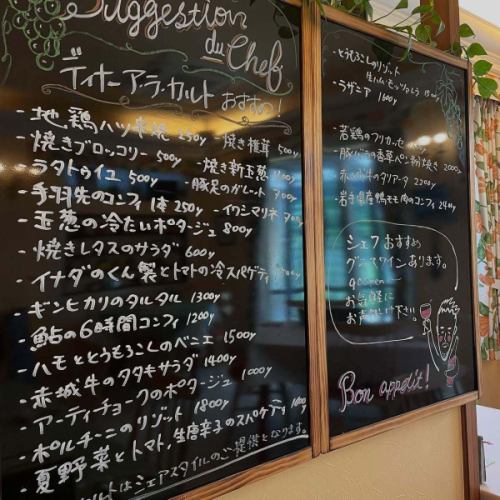 Suggestion
du Chef
ディナーア・ラ・カルト おすすめ!
・地鶏ハツ串焼 250y ・焼き椎茸 500y
・焼きブロッコリー 500y ・焼き新玉葱
・ラタトゥイユ 500y ・豚足のガレット 700y
・手羽先のコンフィ 1本 250y ・イワシマリネ 700y
・玉葱の冷たいポタージュ 800y
・焼きレタスのサラダ 600y
・イナダのくん製とトマトの冷スパゲティ
・ギンヒカリのタルタル 1300y
・鮎の6時間コンフィ 1200y
・ハモととうもろこしのベニエ 1500y
・赤城牛のタタキサラダ 1400y
・アーティチョークのポタージュ 1000y
・ポルチーニのリゾット 1800y
・夏野菜とトマト、生唐辛子のスパゲティ
トはシェアスタイルのご提供となります。
・とうもろこしのリゾット
生ハム・モッツァレラ
・ラザニア 1600y
・若鶏のフリカッセ
・豚バラの香草パン粉焼き 2000y
・赤城牛のタリアータ 2200y
・岩手県産鴨モモ肉のコンフィ 2400y
シェフおすすめ
グラスワインあります。
900yen〜
お気軽に
お声がけ下さい。
Bon appetit!